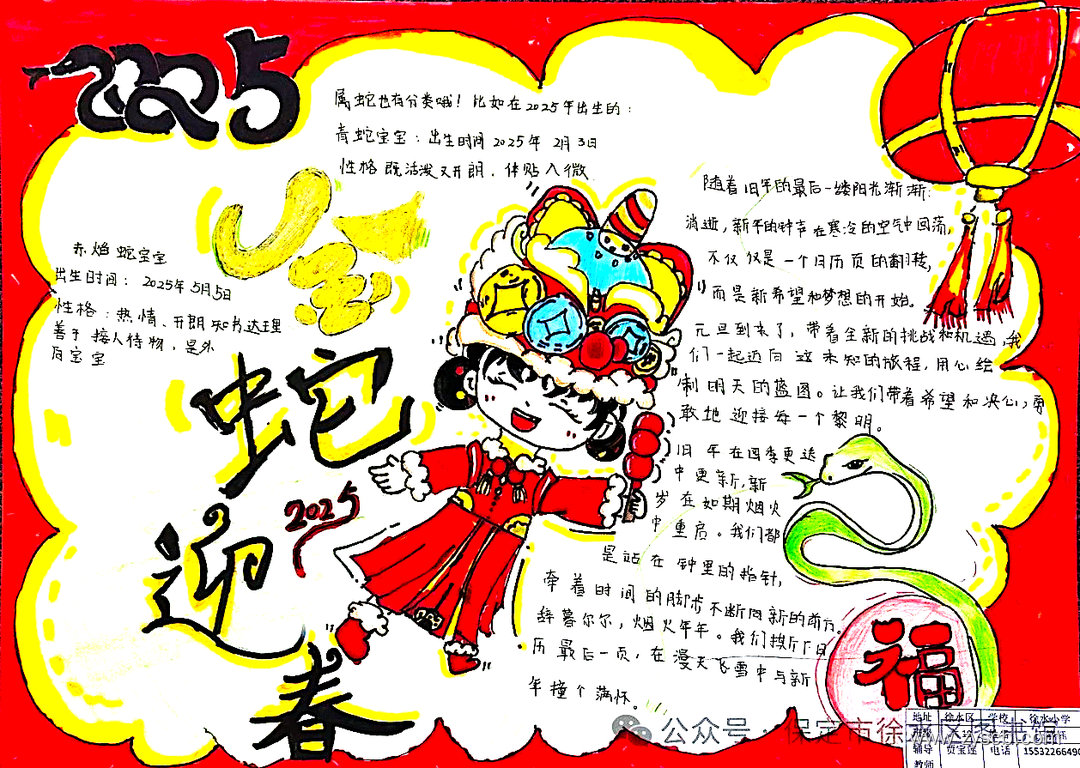 2025
属蛇也有分类哦！比如在2025年出生的：
青蛇宝宝：出生时间2025年 2月3日
性格既活泼又开朗、体贴入微
赤焰蛇宝宝
出生时间： 2025年5月5日
性格：热情、开朗知书达理
善于接人待物，是外
向宝宝
金
蛇
迎
春
2025
随着旧年的最后一缕阳光渐渐
消逝，新年的钟声在寒冷的空气中回荡，
不仅仅是一个日历页的翻转，
而是新希望和梦想的开始。
元旦到来了，带着全新的挑战和机遇，我
们一起迈向这未知的旅程，用心绘
制明天的蓝图。让我们带着希望和决心，勇
敢地迎接每一个黎明。
旧年在四季更迭
中更新，新
岁在如期烟火
中重启。我们都
是站在钟里的指针，
牵着时间的脚步不断向新的前方。
辞暮尔尔，烟火年年。我们撕下旧
历最后一页，在漫天飞雪中与新
年撞个满怀。
福
公众号·保定市徐水区图书馆
地址 徐水区 学校 徐水小学
辅导教师 贡宝莲 电话 1553226649